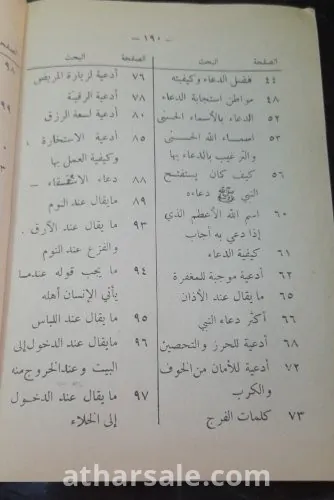 - ١٩٠ -
الصفحة البحث
٤٤ فضل الدعاء وكيفيته
٤٨ مواطن استجابة الدعاء
٥٢ الدعاء بالأسماء الحسنى
٥٣ اسماء الله الحسنى
والترغيب بالدعاء بها
٥٦ كيف كان يستفتح
النبي ﷺ دعاءه
٦٠ اسم الله الأعظم الذي
إذا دعي به أجاب
٦١ كيفية الدعاء
٦٢ أدعية موجبة للمغفرة
٦٥ ما يقال عند الأذان
٦٦ أكثر دعاء النبي
٦٨ أدعية للحرز والتحصين
٧٢ أدعية للأمان من الخوف
والكرب
٧٣ كلمات الفرج
الصفحة البحث
٧٦ أدعية لزيارة المريض
٧٨ أدعية الرقية
٨٠ أدعية لسعة الرزق
٨٥ أدعية الاستخارة
وكيفية العمل بها
٨٨ دعاء الاستسقاء -
٨٩ مايقال عند النوم
٩٣ ما يقال عند الأرق
والفزع عند النوم
٩٤ ما يجب قوله عندما
يأتي الإنسان أهله
٩٥ ما يقال عند اللباس
٩٦ مايقال عند الدخول إلى
البيت وعند الخروج منه
٩٧ ما يقال عند الدخول
إلى الخلاء
الصفحة
٩٨
٩٩
atharsale.com